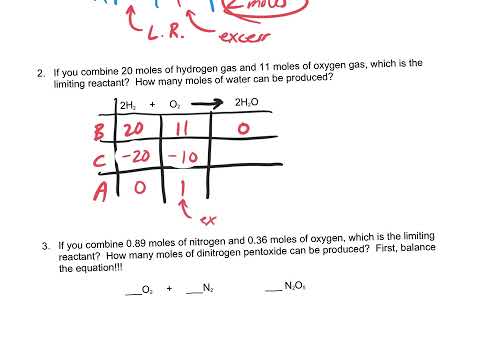 moles
L.R.
excess
2. If you combine 20 moles of hydrogen gas and 11 moles of oxygen gas, which is the
limiting reactant? How many moles of water can be produced?
2H₂ + O₂ → 2H₂O
B 20 11 0
C -20 -10
A 0 1
ex
3. If you combine 0.89 moles of nitrogen and 0.36 moles of oxygen, which is the limiting
reactant? How many moles of dinitrogen pentoxide can be produced? First, balance
the equation!!!
__O₂ + __N₂ __N₂O₅